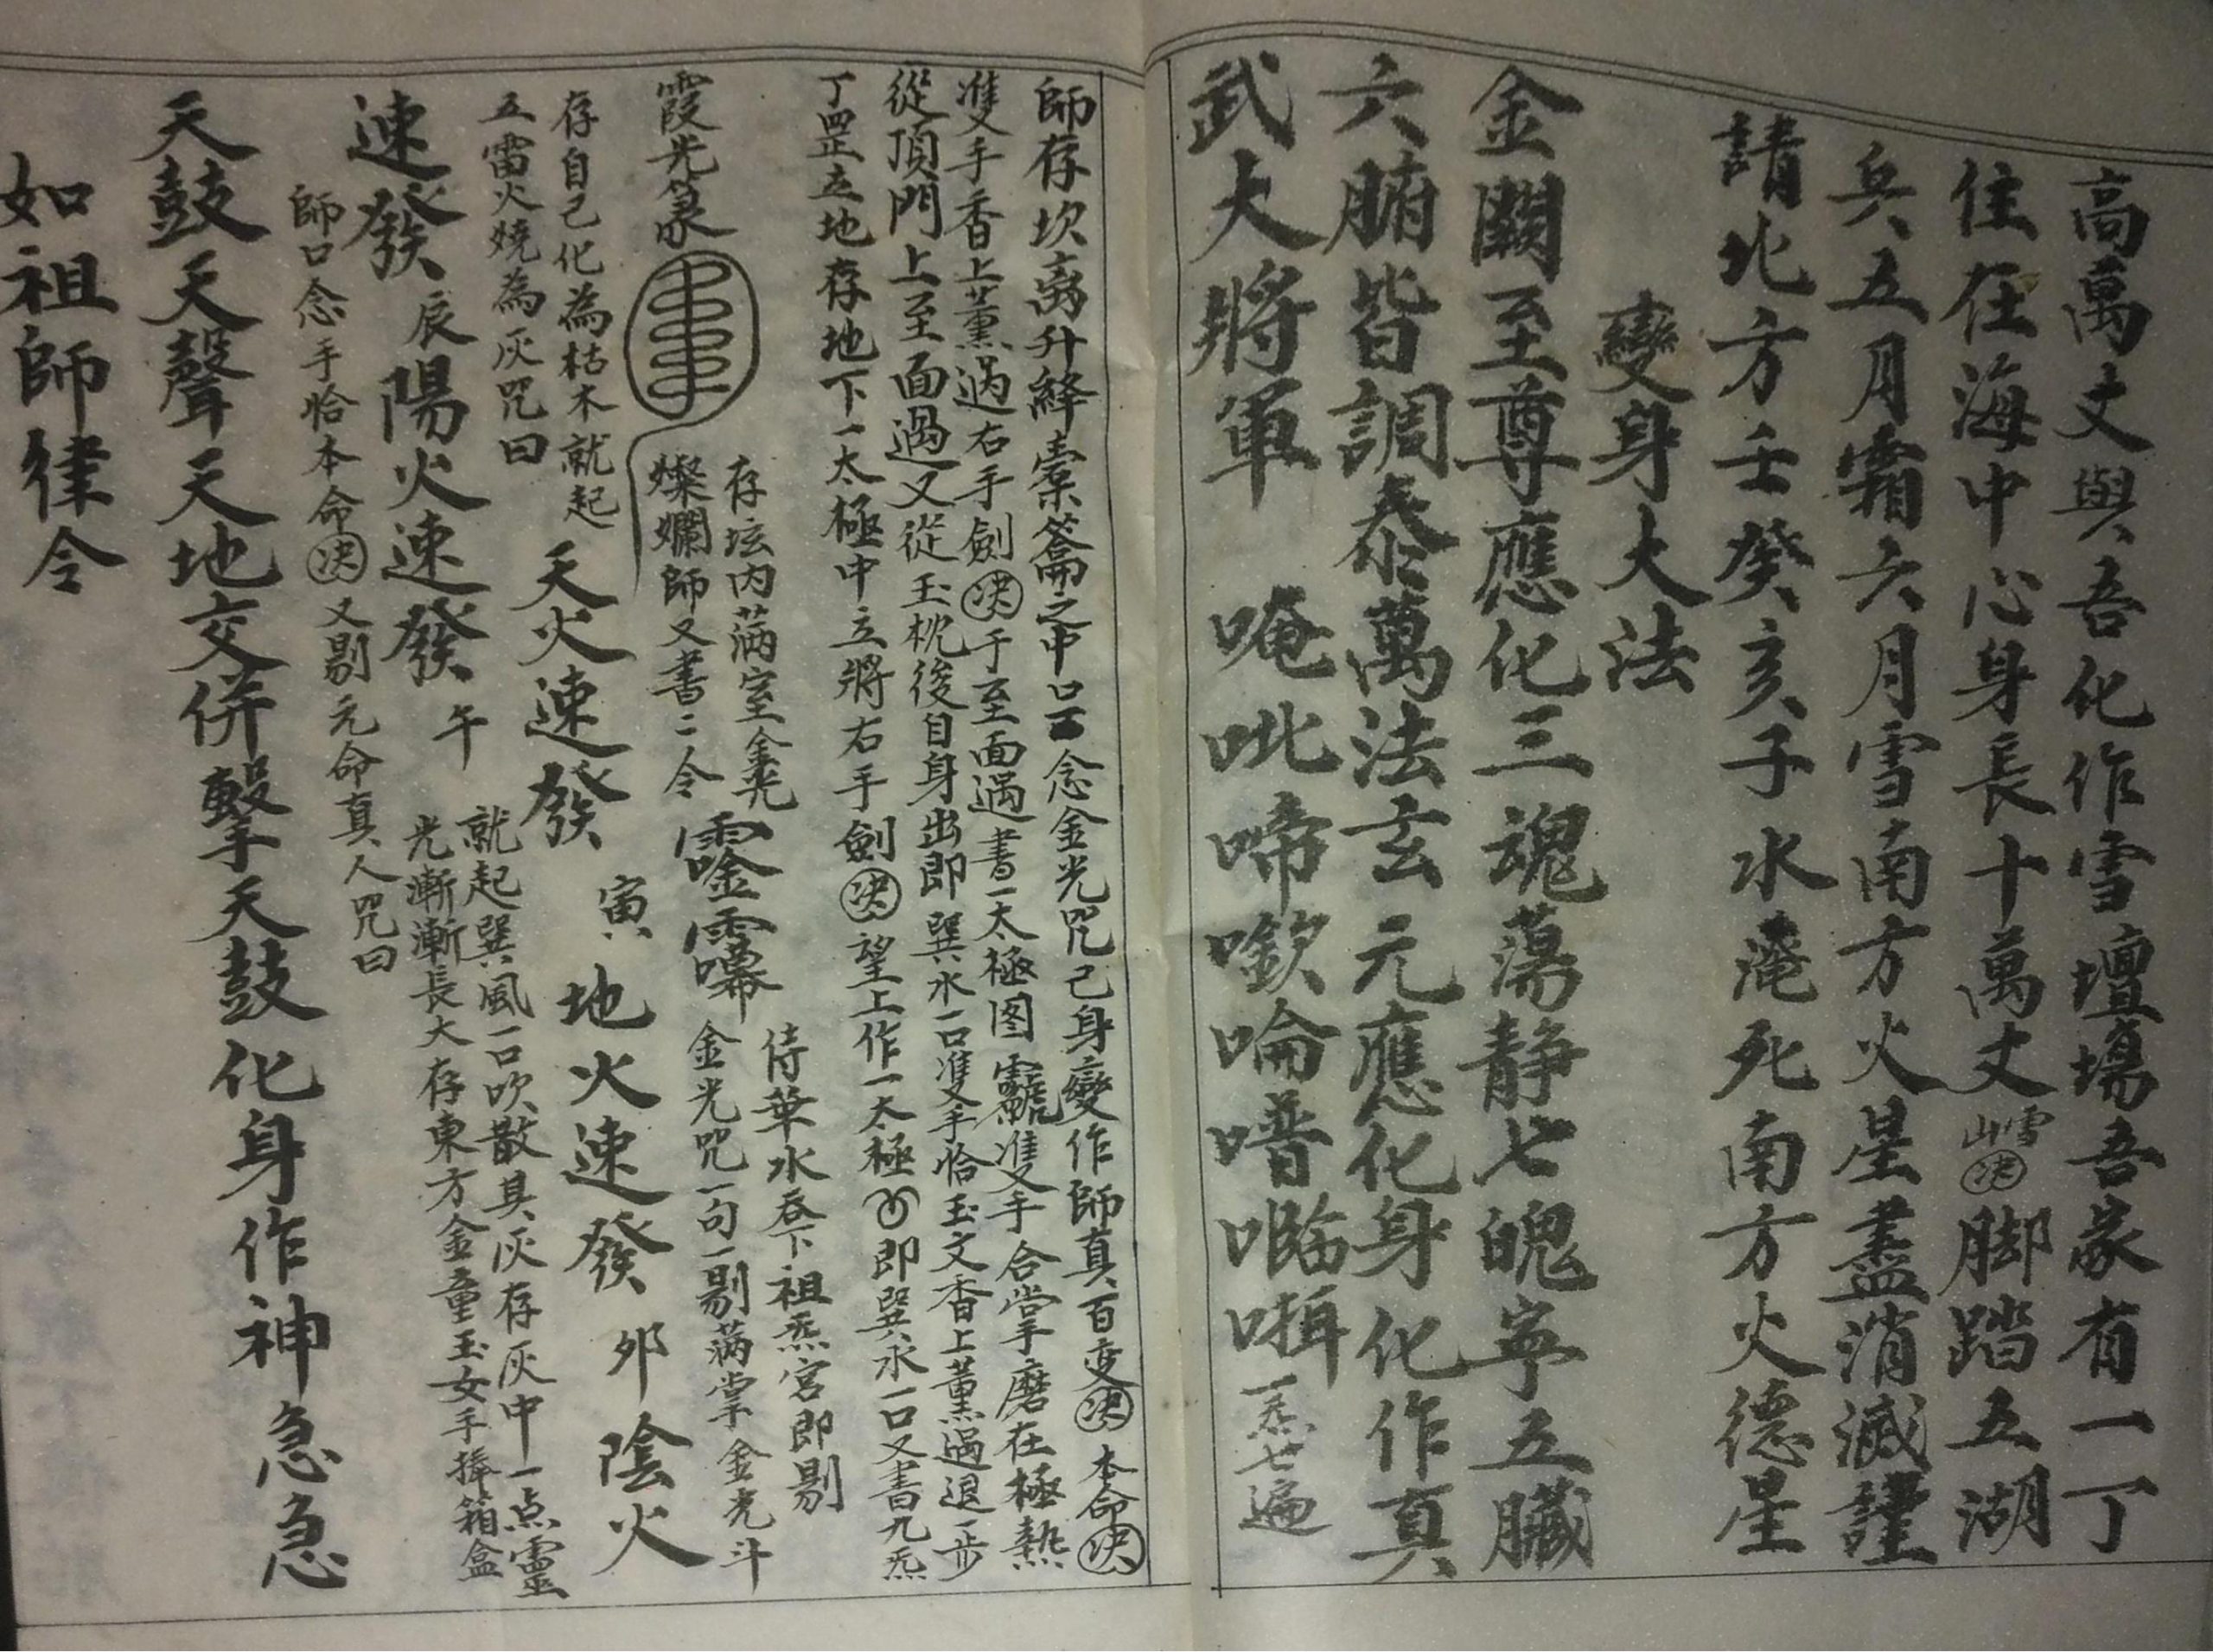 高萬丈與吾化作雪壇塲吾家有一丁
住在海中心身長十萬丈雪山決脚踏五湖
兵五月霜六月雪南方火星盡消滅謹
請北方壬癸亥子水淹死南方火德星
變身大法
金闕至尊應化三魂蕩静七魄寕五臟
六腑皆調泰萬法玄元應化身化作真
武大將軍 唵吡啼㗛啽噆㗲 一炁七遍
師存坎离升絳 籥之中口 念金光咒己身變作師真百变決本命決
雙手香上薫過右手劍決于至面過書一太極图 雙手合掌磨在極熱
從頂門上至面過又從玉枕後自身出即巽水一口雙手恰玉文香上薫過退一步
丁罡立地存地下一太極中立將右手劍決望上作一太極 即巽水一口又書九炁
霞光篆
存坛内满室金光
燦爛師又書二令 侍華水吞下祖炁宮即剔
金光咒一句一剔满掌金光斗
存自己化為枯木就起
五雷火燒為灰咒曰
天火速發 寅 地火速發 夘 陰火
速發 辰 陽火速發 午 就起巽風一口吹散其灰存灰中一点靈
光漸漸長大存東方金童玉女手捧箱盒
師口念手恰本命決又剔元命真人咒曰
天鼓天聲天地交併擊天鼓化身作神急急
如祖師律令